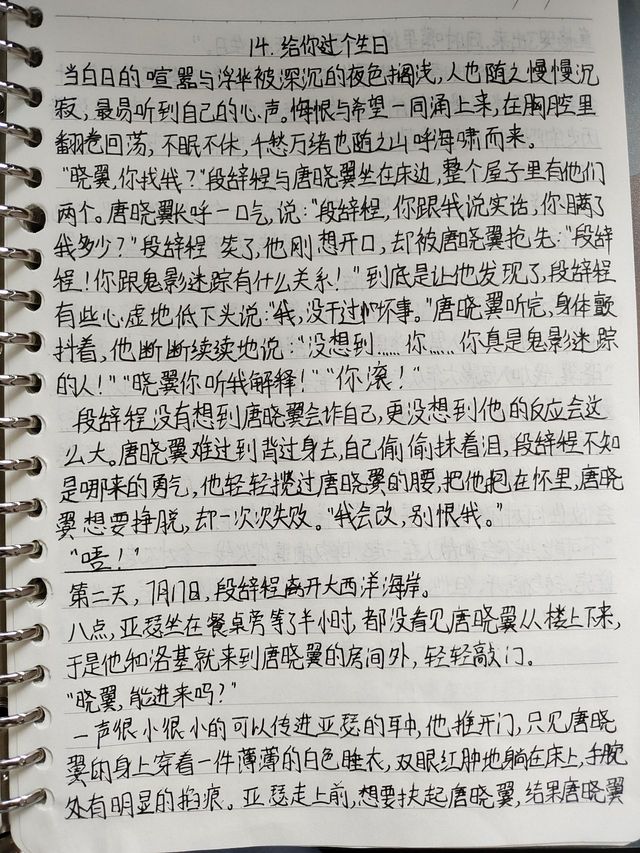 14. 给你过个生日
当白日的喧嚣与浮华被深沉的夜色搁浅,人也随之慢慢沉
寂,最易听到自己的心声。悔恨与希望一同涌上来,在胸腔里
翻卷回荡,不眠不休,千愁万绪也随之山呼海啸而来。
"晓翼,你找我?"段辞程与唐晓翼坐在床边,整个屋子里有他们
两个。唐晓翼长呼一口气,说:"段辞程,你跟我说实话,你瞒了
我多少?"段辞程 笑了,他刚想开口,却被唐晓翼抢先:"段辞
程!你跟鬼影迷踪有什么关系!"到底是让他发现了,段辞程
有些心虚地低下头说:"我,没干过坏事。"唐晓翼听完,身体颤
抖着,他断断续续地说:"没想到……你……你真是鬼影迷踪
的人!""晓翼你听我解释!""你滚!"
段辞程没有想到唐晓翼会诈自己,更没想到他的反应会这
么大。唐晓翼难过到背过身去,自己偷偷抹着泪,段辞程不知
是哪来的勇气,他轻轻揽过唐晓翼的腰,把他抱在怀里,唐晓
翼想要挣脱,却一次次失败。"我会改,别恨我。"
"唔!"
第二天,7月17日,段辞程离开大西洋海岸。
八点,亚瑟坐在餐桌旁等了半小时,都没看见唐晓翼从楼上下来,
于是他和洛基就来到唐晓翼的房间外,轻轻敲门。
"晓翼,能进来吗?"
一声很小很小的可以传进亚瑟的耳中,他推开门,只见唐晓
翼的身上穿着一件薄薄的白色睡衣,双眼红肿地躺在床上,手腕
处有明显的掐痕。亚瑟走上前,想要扶起唐晓翼,结果唐晓翼